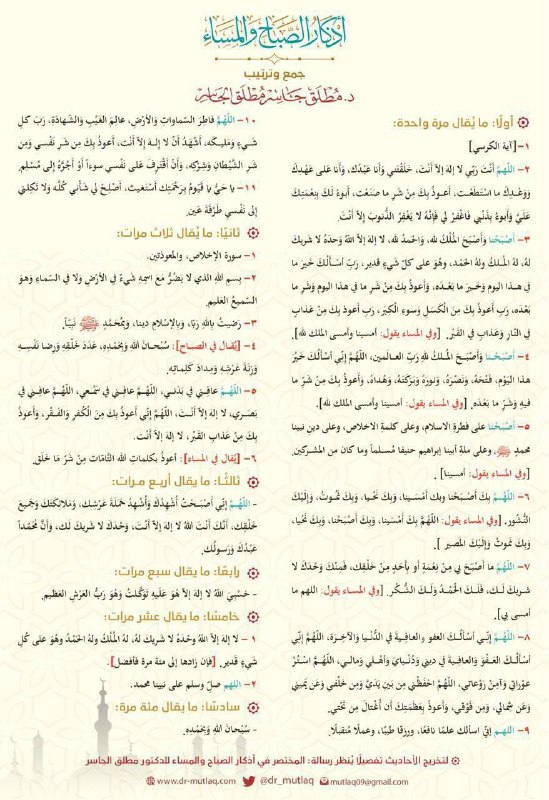 أذكار الصباح والمساء
جمع وترتيب
د. مطلق جاسر مطلق الجاسر
أولًا: ما يُقال مرة واحدة:
١- [آية الكرسي]
٢- اللَّهُمَّ أنتَ رَبِّي لا إلهَ إلاَّ أنْتَ، خَلَقْتَني وأنا عَبْدُك، وَأنا على عَهْدِكَ
وَوَعْدِكَ ما اسْتَطَعْت، أعـوذُ بِكَ مِنْ شَرِ ما صنَعْت، أبوءُ لَكَ بِنِعْمَتِكَ
عَلَيَّ وَأبوءُ بِذَنْبي فاغْفِرْ لي فَإنَّهُ لا يَغْفِرُ الذُّنوبَ إلاَّ أنْتَ.
٣- أصْبَحْنا وَأَصْبَحَ المُلْكُ لله، وَالحَمدُ لله، لا إلهَ إلاَّ اللهُ وَحدَهُ لا شَريكَ
لهُ، لهُ المُلكُ ولهُ الحَمْد، وهُوَ على كلّ شَيءٍ قدير، رَبِّ أسْألُكَ خَيرَ ما
في هـذا اليوم وَخَيرَ ما بَعْـدَه، وَأعوذُ بكَ مِنْ شَرِّ ما في هـذا اليوم وَشَرِّ ما
بَعْدَه، رَب أعوذُ بِكَ مِنَ الْكَسَلِ وَسوءِ الْكِبَر، رَبِّ أعوذُ بكَ مِنْ عَذابٍ
في النّارِ وَعَذابٍ في القَبْر. [وفي المساء يقول: أمسينا وأمسى الملك لله].
٤- أصْبَـحْنا وَأَصْبَحَ المـلكُ للهِ رَبِّ العـالَمـين، اللهُمَّ إنِّي أسْألُكَ خَيْرَ
هـذا اليَوْم، فَتْحَهُ، وَنَصْرَهُ، وَنورَهُ وَبَرَكَتَهُ، وَهُداهُ، وَأعوذُ بِكَ مِنْ شَرِّ ما
فيهِ وَشَرِّ ما بَعْدَه. [وفي المساء يقول: أمسينا وأمسى الملك لله].
٥- أصْبَحْنا على فطرةِ الاسلام، وعلى كلمةِ الاخلاص، وعلى دين نبينا
محمدٍ ﷺ وعلى ملة أبينا إبراهيم حنيفا مُسلماً وما كان من المشركين.
[وفي المساء يقول: أمسينا].
٦- اللّهُمَّ بِكَ أَصْبَحْنا وبِكَ أمْسَينا، وَبكَ نَحْيا، وَبِكَ نَمُوتُ، وَإلَيْكَ
النُّشُور. [وفي المساء يقول: اللهُمَّ بِكَ أَمْسَينا، وبِكَ أَصْبَحْنا، وَبِكَ نَحْيا،
وَبِكَ نموتُ وَإلَيْكَ المَصير ].
٧- اللَّهُمَّ ما أصْبَحَ بي مِنْ نِعْمَةٍ أو بأحَدٍ مِنْ خَلْقِكَ، فَمِنْكَ وَحْدَكَ لا
شَريكَ لَكَ، فَلَكَ الْحَمْدُ وَلَكَ الشُّكْر. [وفي المساء يقول: اللهم ما
أمسى بي].
٨- اللهُمَّ إنِّـي أسْألُـكَ العفو والعافِيةَ في الدُّنْـيا وَالآخِـرَة، اللهُمَّ إنِّي
أسْألُكَ العَـفْوَ وَالعافِيةَ في ديني وَدُنْيايَ وَأهْلي وَمالِـي، اللهُمَّ اسْتُرْ
عوْراتي وَآمِنْ رَوْعاتي، اللهُمَّ احْفَظْني مِن بَينِ يَديَّ وَمِن خَلْفي وَعَن يَميني
وَعَن شِمالي، وَمِن فَوْقي، وَأعوذُ بِعَظَمَتِكَ أن أُغْتالَ مِن تَحْتي.
٩- اللهم إنّي أسألك علمًا نافعًا، ورزقا طيبًا، وعملًا مُتقبلًا.
١٠- اللّهُمَّ فاطِرَ السّماواتِ وَالأرْضِ، عالِمَ الغَيْبِ وَالشّهادَةِ، رَبّ كلِّ
شَيءٍ وَمَليكَه، أشْهَدُ أنْ لا إلـهَ إلاّ أنْت، أعوذُ بِكَ مِن شَر نَفْسي وَمِن
شَر الشَّيْطانِ وَشِركِه، وَأنْ أقْتَرِفَ على نَفْسي سوءاً أوْ أَجُرَّهُ إلى مُسْلِمٍ.
١١- يا حيُّ يا قيُّومُ بِرَحْمَتِكَ أستغيث، أصْلِحْ لي شَأني كُلَّه وَلا تَكِلني
إلى نَفْسي طَرْفَةَ عَين.
ثانيًا: ما يُقال ثلاث مرات:
١- سورة الإخلاص، والمعوذتين.
٢- بِسـمِ اللهِ الذي لا يَضُرُّ مَعَ اسمِهِ شَيءٌ في الأرْضِ وَلا في السّماءِ وَهوَ
السّميعُ العَليم.
٣- رَضيتُ باللهِ رَبًّا، وَبالإسْلامِ دينا، وَبِمُحَمَّدٍ ﷺ نَبيًّا.
٤- [يُقال في الصباح]: سُبْـحانَ اللهِ وَبِحَمْدِهِ، عَدَدَ خَلْقِهِ وَرِضا نَفْسِـهِ
وَزِنَةَ عَرْشِهِ وَمِدادَ كَلِماتِه.
٥- اللّهُمَّ عافِـني في بَدَني، اللّهُمَّ عافِـني في سَمْعي، اللّهُمَّ عافِـني في
بَصَـري، لا إلهَ إلاّ أنْـتَ، اللّهُمَّ إنّي أعوذُ بِكَ مِنَ الْكُفرِ وَالفَـقْر، وَأعوذُ
بِكَ مِنْ عَذابِ القَبْر، لا إلهَ إلاّ أنْتَ.
٦- [يُقال في المساء]: أعوذُ بكلماتِ الله التَّامّات مِنْ شَرّ مَا خَلَق.
ثالثًا: ما يقال أربع مرات:
- اللّهُمَّ إنّي أصبَـحْتُ أُشْهِدُكَ وَأُشْهِدُ حَمَلَةَ عَرْشِك، وَمَلائكتَكَ وَجَميعَ
خَلْقِك، أنَّكَ أنْتَ اللهُ لا إلهَ إلاّ أنْتَ، وَحْدَكَ لا شَريكَ لَك، وَأنَّ مُحَمَّداً
عَبْدُكَ وَرَسولُك.
رابعًا: ما يقال سبع مرات:
- حَسْبِيَ اللهُ لا إلهَ إلاّ هُوَ عَلَيهِ تَوَكَّلتُ وَهُوَ رَبُّ العَرْشِ العَظيم.
خامسًا: ما يقال عشر مرات:
١ - لا إلهَ إلاّ اللهُ وحْدَهُ لا شَريكَ لهُ، لهُ المُلْكُ ولهُ الحَمْدُ وهُوَ على كُلِ
شَيءٍ قَدير. [فإن زادها إلى مئة مرة فأفضل].
٢- اللهم صلّ وسلم على نبينا محمد.
سادسًا: ما يقال مئة مرة:
- سُبْحانَ اللهِ وَبِحَمْدِه.
لتخريج الأحاديث تفصيلًا يُنظر رسالة: المختصر في أذكار الصباح والمساء للدكتور مطلق الجاسر
www.dr-mutlaq.com @dr_mutlaq mutlaq09@gmail.com